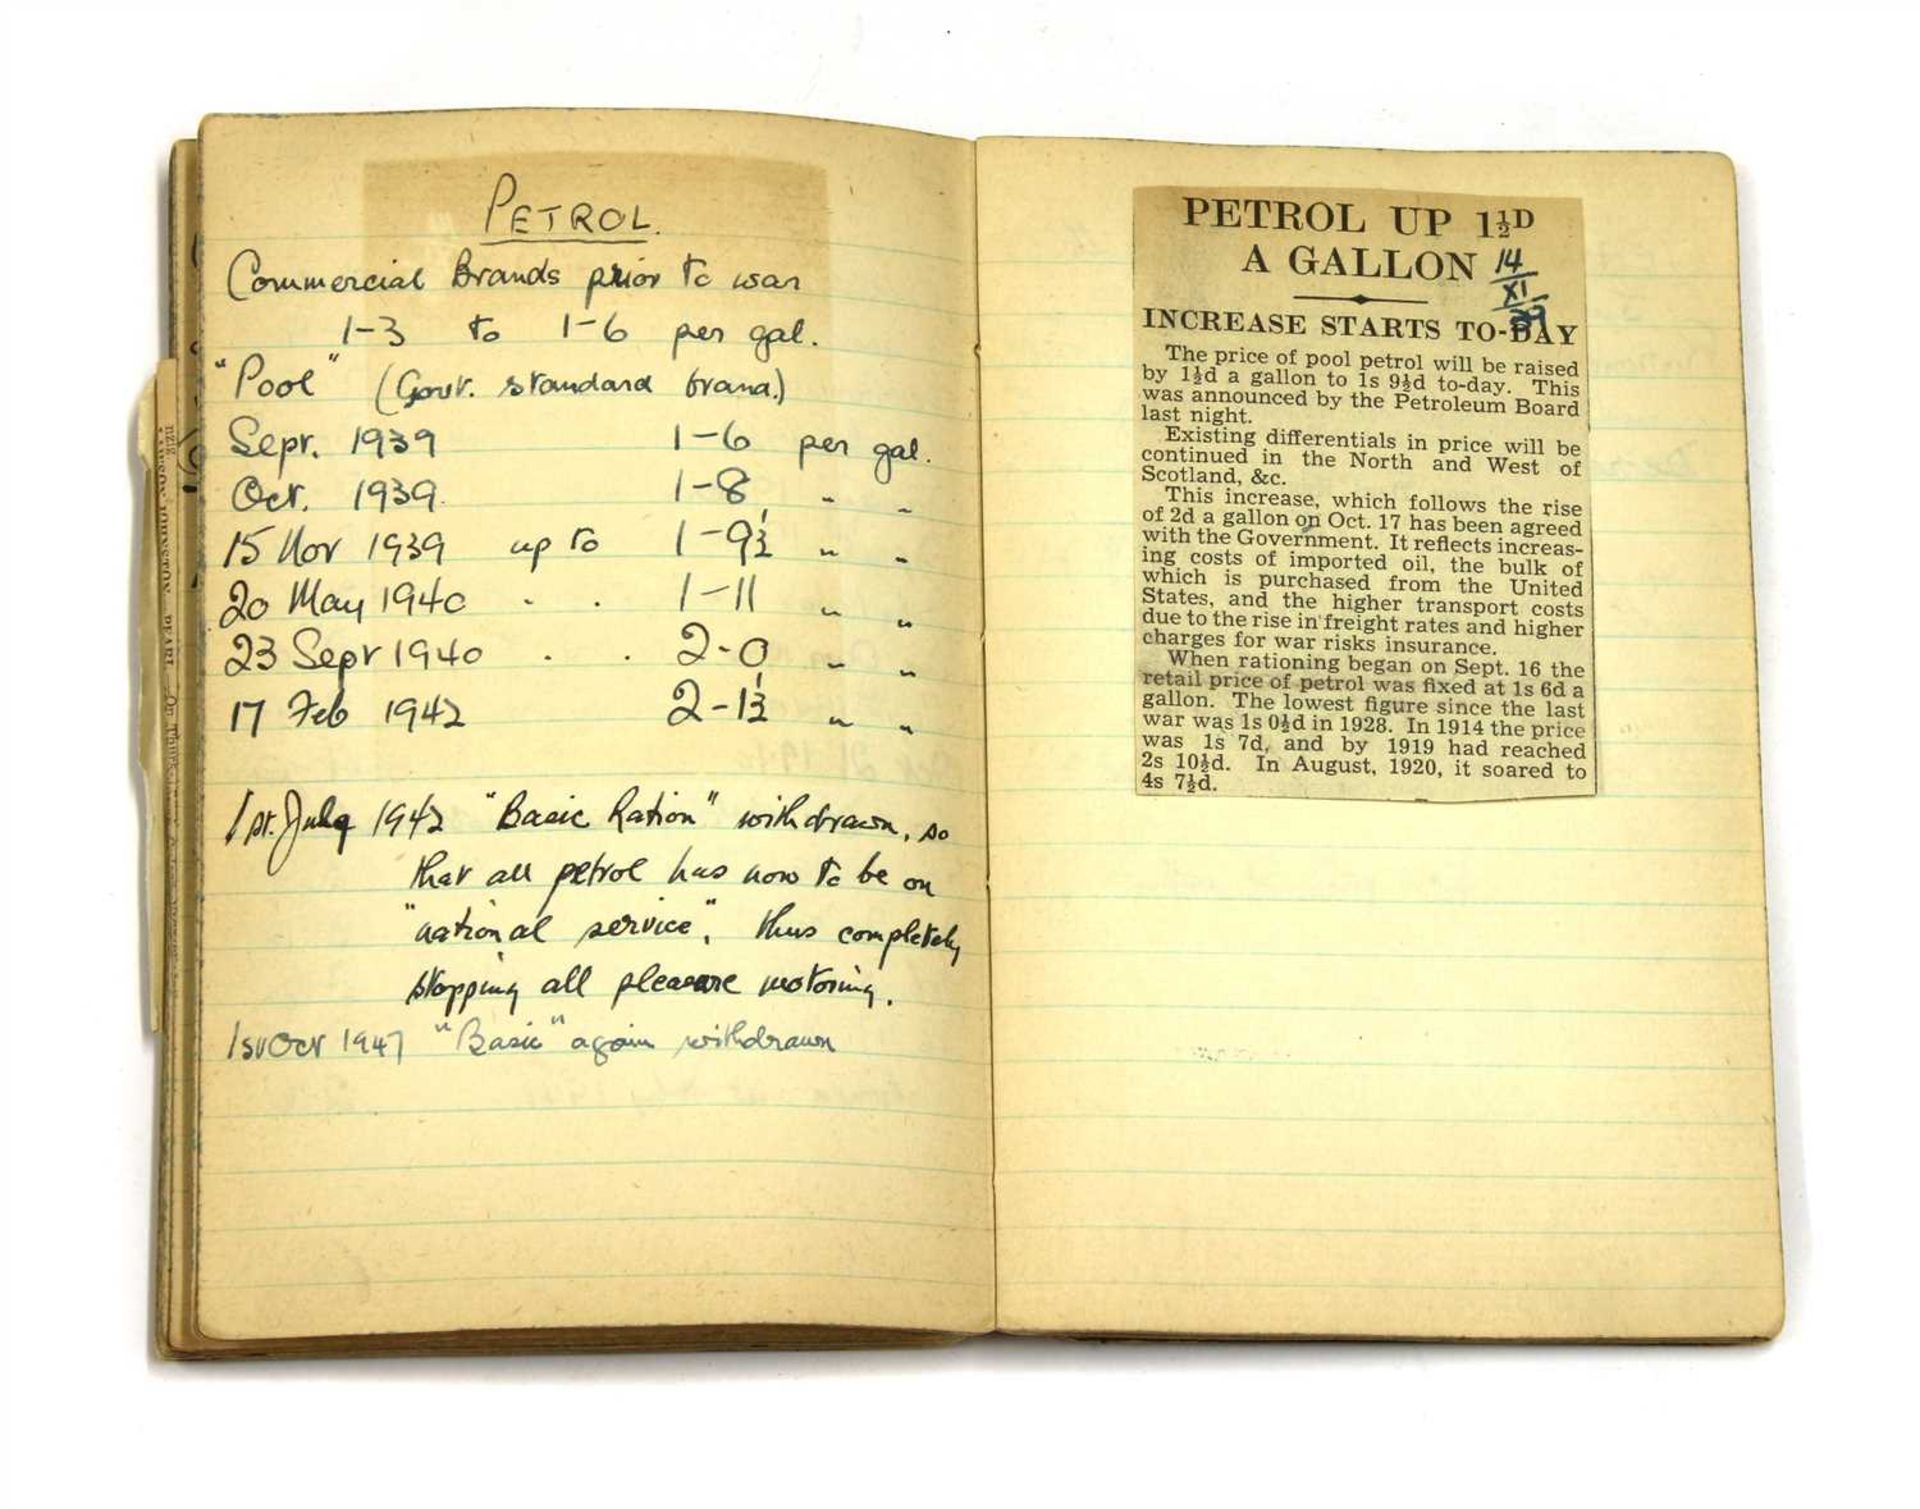 PETROL.
Commercial Brands prior to war
1-3 to 1-6 per gal.
"Pool" (Govt. standard brand.)
Sept. 1939 1-6 per gal.
Oct. 1939. 1-8 " "
15 Nov 1939 up to 1-9½ " "
20 May 1940 " " 1-11 " "
23 Sept 1940 " " 2-0 " "
17 Feb 1942 2-1½ " "
1st. July 1942 "Basic Ration" withdrawn, so
that all petrol has now to be on
"national service", thus completely
stopping all pleasure motoring.
1st Oct 1947 "Basic" again withdrawn
PETROL UP 1½D
A GALLON
14
XI
39
INCREASE STARTS TO-DAY
The price of pool petrol will be raised
by 1½d a gallon to 1s 9½d to-day. This
was announced by the Petroleum Board
last night.
Existing differentials in price will be
continued in the North and West of
Scotland, &c.
This increase, which follows the rise
of 2d a gallon on Oct. 17 has been agreed
with the Government. It reflects increas-
ing costs of imported oil, the bulk of
which is purchased from the United
States, and the higher transport costs
due to the rise in freight rates and higher
charges for war risks insurance.
When rationing began on Sept. 16 the
retail price of petrol was fixed at 1s 6d a
gallon. The lowest figure since the last
war was 1s 0½d in 1928. In 1914 the price
was 1s 7d, and by 1919 had reached
2s 10½d. In August, 1920, it soared to
4s 7½d.